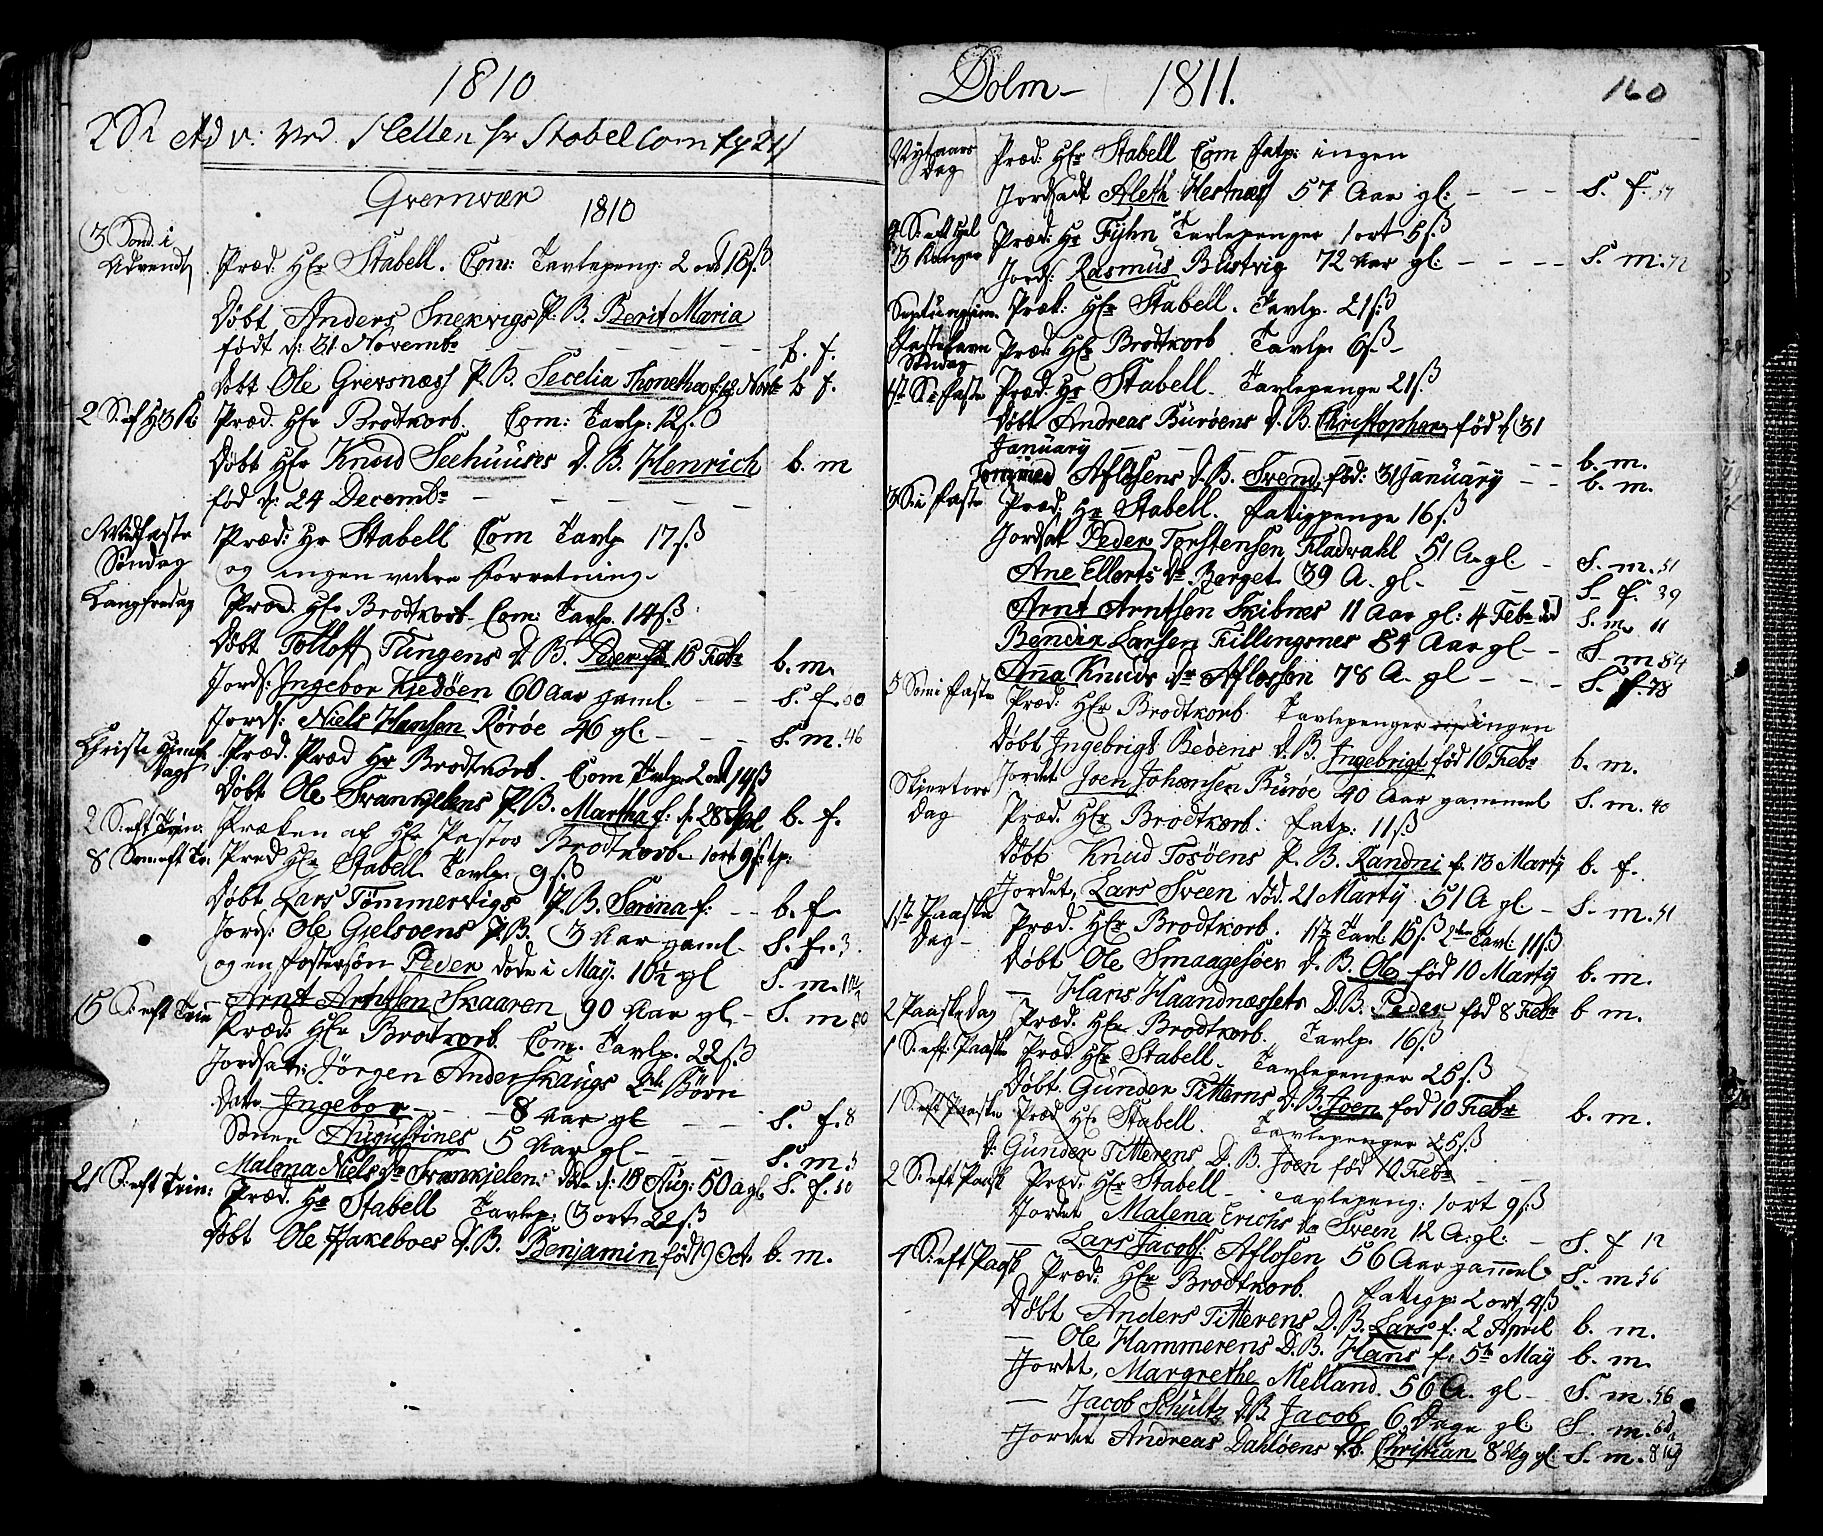 1810
2 S. i Adv: ved Sletten hr Stabel Com
Gremvær
1810
3 Sond. i Advendt Præd: Hr Stabell. Com: Tavlepeng: 2 ort 16 sß
Døbt Anders Snekvigs P. B. Berit Maria
født d: 31 Novembr — b. f.
Døbt Ole Grevsnæss P. B. Secelia Thonethea f: 12 Novbr b f.
2 S. ef H 3 K: Præd. Hr Brodtkorb. Com: Tavlp: 12 ß
Døbt Hr Knud Seehuuses D. B. Henrich b. m
fød d: 24 Decembr
Midfaste Søndag Præd: Hr Stabell Com Tavlp 17 sß
og ingen videre Forretning
Langfredag Præd: Hr Brodtkorb Com: Tavlp. 14 sß
Døbt Tolloff Tungens D. B. Peder fød 15 Febr b. m.
Jords: Ingebor Kjedøen 60 Aar gaml. S. f. 60
Jords: Niels Hansen Rørøe 46 gl: S. m. 46
Christi Himmelf. Dag Præd. Præd Hr Brodtkorb. Com Tavlp 2 ort 14 ß
Døbt Ole Svankjelens P. B. Martha f: d. 28 Apl b. f.
2 S. eft Trin: Præken af Hr Pastor Brodtkorb 1 ort 9 ß tp:
8 Søn eft Tr: Præd Hr Stabell Tavlp. 9 sß
Døbt Lars Tømmervigs P. B. Serina f: b. f.
Jords: Ole Gjelsøens P. B. 3 Aar gaml S. f. 3.
og en fostersøn Peder døde i May. 10½ gl S. m. 10½
Arnt Arntsen Skaaren 90 Aar gl S. m 90
15 S. eft Trin Præd: Hr Brodtkorb. Com. Tavlp. 22 sß
Jordsat: Jørgen Anderskaugs Børn
Datr Ingebor 8 Aar gl S. f. 8
Sønen Augustines 5 Aar gl S. m. 5
Malena Niels dr Svankjelen: døde d: 18 Aug: 50 A gl S. f. 50
21 S. eft Trin: Præd. Hr Stabell Tavlep: 3 ort 22 sß
Døbt Ole Hakeboes D. B. Benjamin født 9 Oct. b. m.
Dolm — 1811.
160
Nytaars Dag Præd: Hr Stabell Com fatp: ingen
Jordsadt Aleth Hestnæs 57 Aar gl: S. f. 57
Præd: Hr Fyhn Tavlepenger 1 ort 5 sß
3 Konger Jords: Rasmus Bustvig 72 Aar gl: S. m. 72
Septuagesim. Præk: Hr Stabell. Tavlp. 21 sß
Fastelavn Søndag Præd: Hr Brodtkorb Tavlp 6 ß
1st S. i Faste Præd: Hr Stabell. Tavlepenge 21 sß
Døbt Andreas Burøens D. B. Christopher fød d 31
January b. m.
Tommed Aflosens D. B. Svend fød: 31 January b. m.
3 S. i Faste Præd: Hr Stabell. Fatigpenge 16 sß
Jordsat Peder Torstensen Fladvahl 51 A. gl S. m. 51
Ane Ellerts dr Berget 39 A. gl S. f. 39
Arnt Arntsen Skibnes 11 Aar gl: 4 Febr død S. m. 11
Bendix Larsen Killingsnes 84 Aar gl S. m 84
Anna Knuds dr Aflossen 78 A. gl S. f. 78
5 Søn i Faste Præd: Hr Brodtkorb. Tavlepenger ingen
Døbt Ingebrigt Beøens D. B. Ingebrigt fød 10 Febr b. m.
Jordet Joen Johansen Burøe 40 Aar gammel S. m. 40
Skjertors dag Præd. Hr Brodtkorb. fatp: 11 sß
Døbt Knud Tosøens P. B. Randni f: 13 Marty b. f.
Jordet, Lars Sveen død. 21 Marty 51 A gl S. m. 51
1st Paaske Dag Præd. Hr Brodtkorb. 1ste Tavl 15 ß 2den Tavl: 11 ß
Døbt Ole Smaagesøes D. B. Ole fød 10 Marty b. m.
— Hans Haandnæssets D. B. Peder fød 8 Febr b m.
2 Paaskedag Præd. Hr Brodtkorb. Tavlp. 16 sß
1 S. eft: Paaske Præd Hr Stabell. Tavlepenger 25 sß
Døbt Gunder Titterns D. B. Joen fød 10 Febr b. m.
1 S. eft Paaske Præd Hr Stabell. Tavlepenger 25 sß
D. Gunder Titterens D. B. Joen fød 10 Febr
2 S. eft Paask Præd. Hr Stabell Tavlepeng: 1 ort 9 sß
Jordet Malena Erichs dr Sveen 12 A: gl. S. f 12
— Lars Jacobs: Aflosen 56 Aar gammel S. m. 56
4 S. eft Paask Præd: Hr Brodtkorb. Fatigp: 2 ort 4 sß
Døbt Anders Titterens D. B. Lars f: 2 April b. m.
— Ole Hammerens D. B. Hans f: 5te May b. m.
Jordet, Margrethe Melland. 56 A. gl S. m. 56
— Jacob Schultz D. B. Jacob 6 Dage gl: S. m. 6 d
Jordet Andreas Dahløens D. b. Christian 8 Ug gl: S. m. 8 Ug